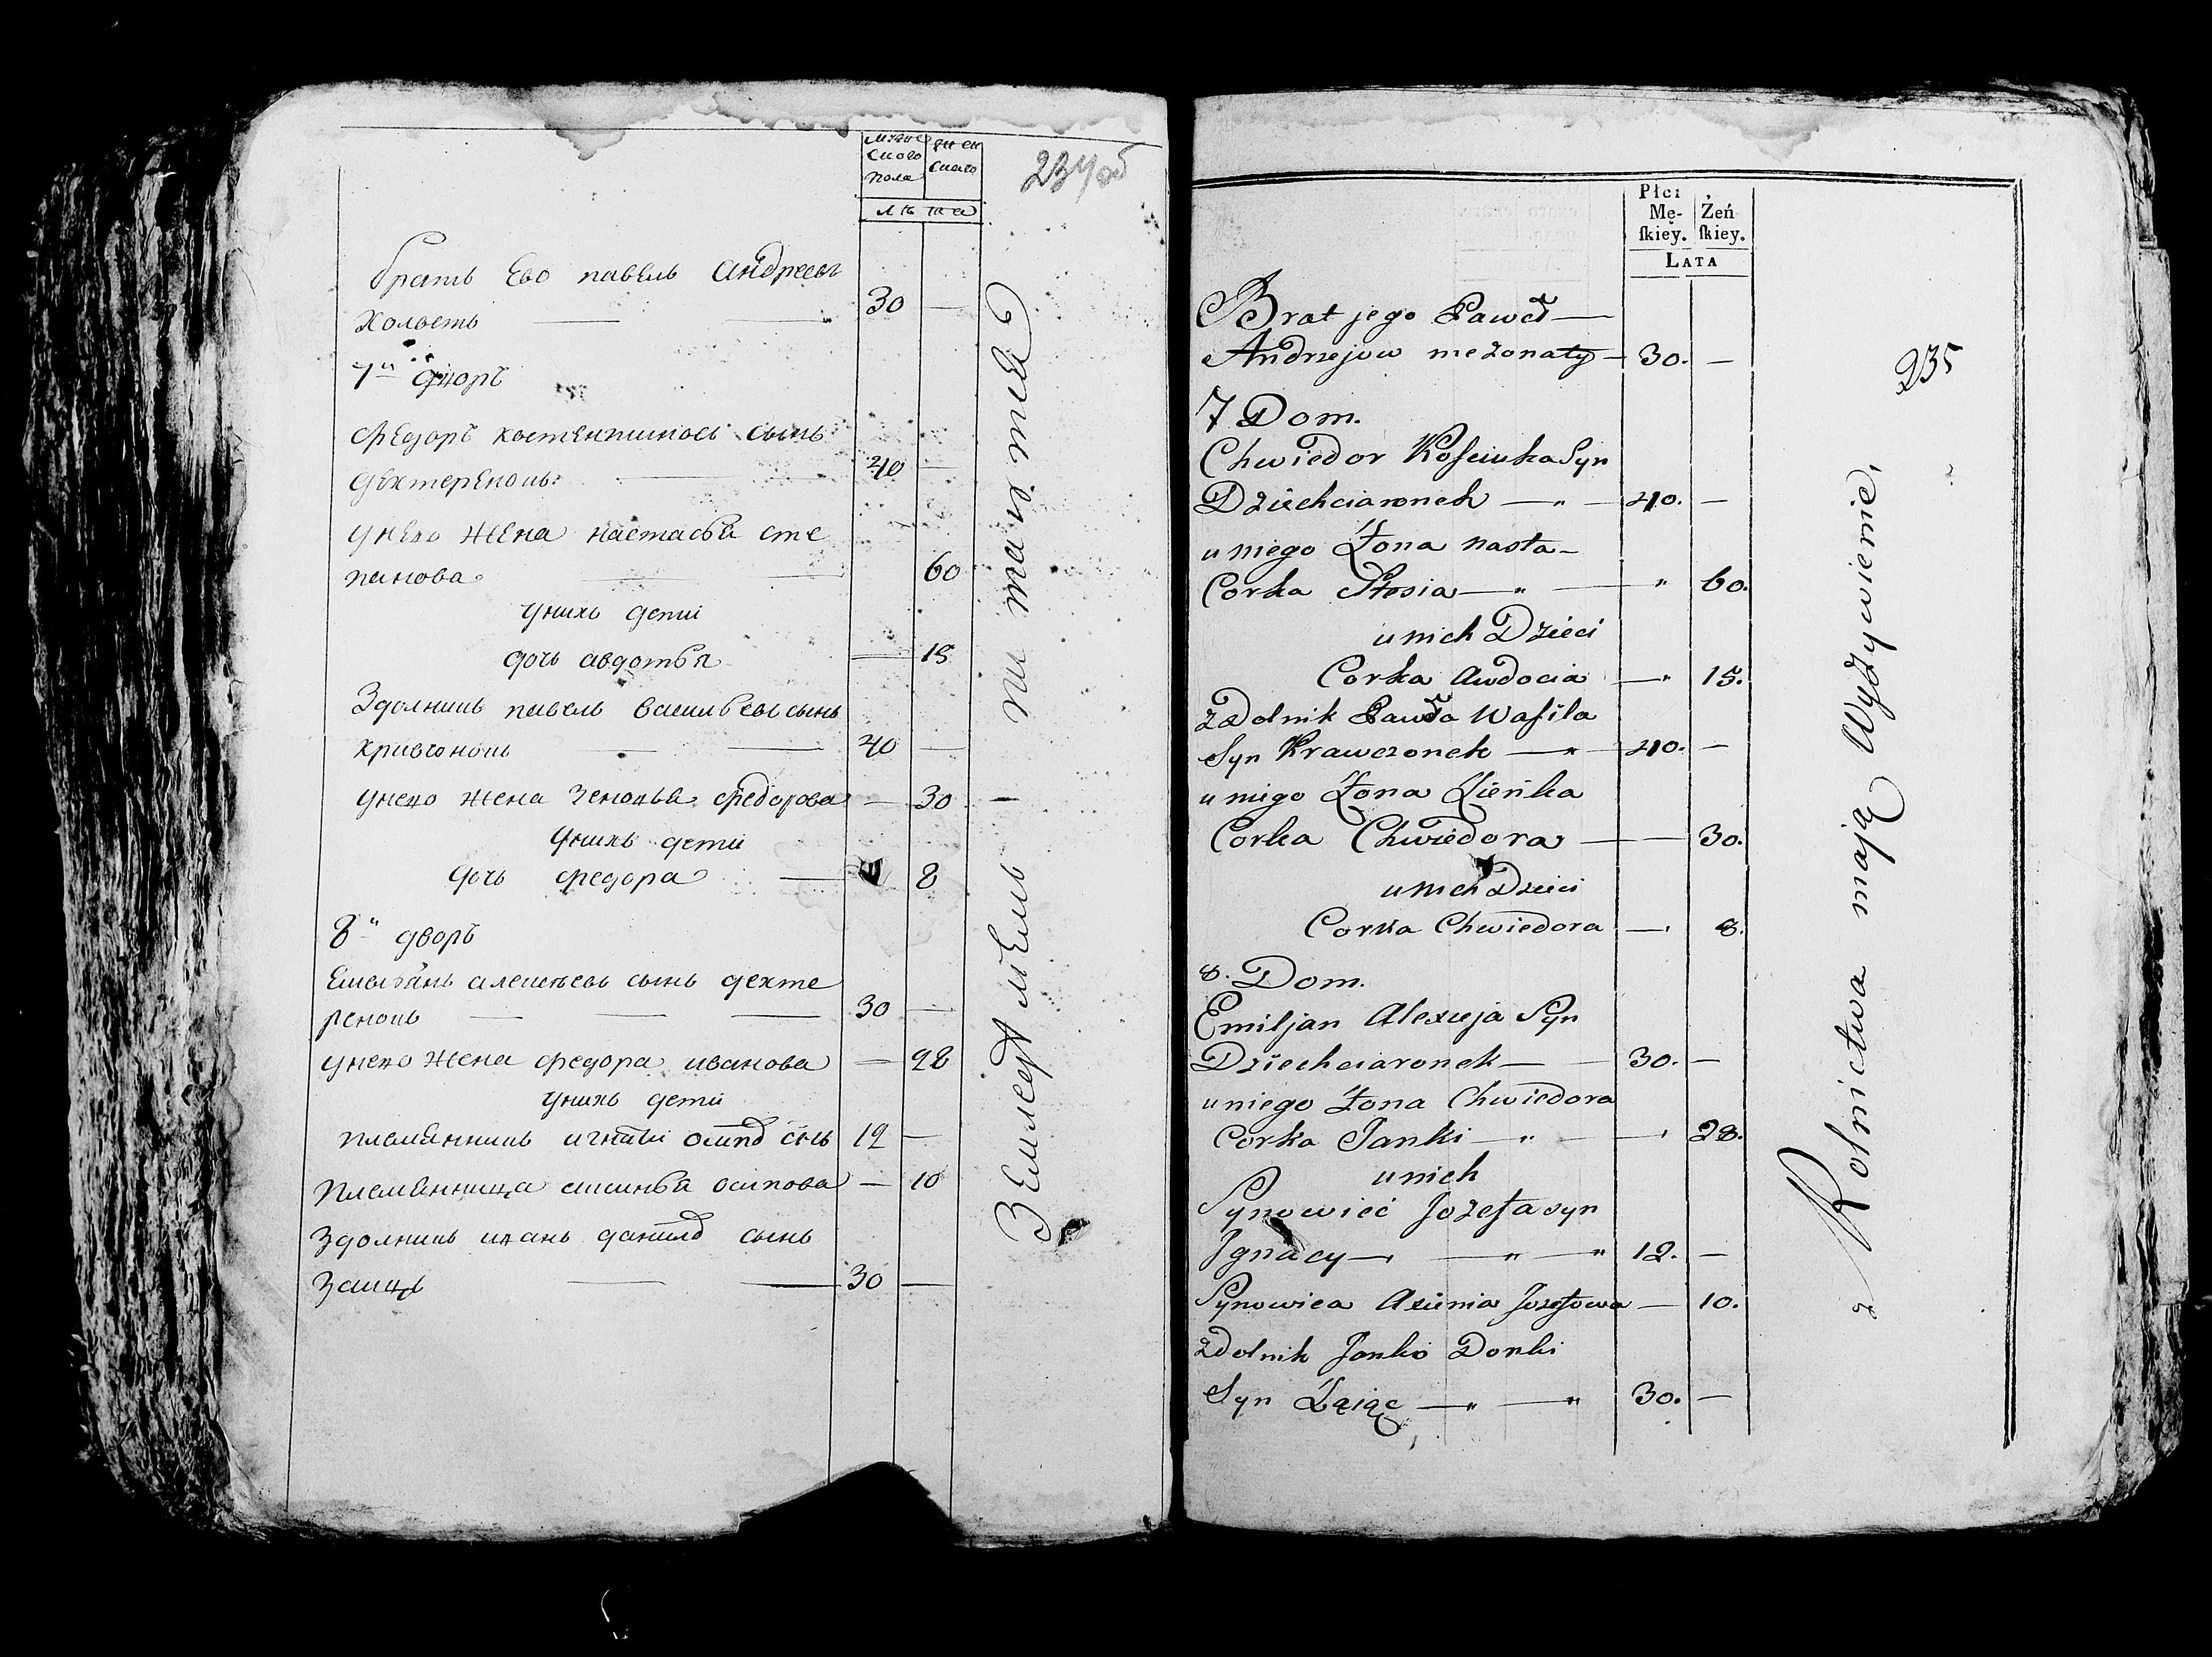 мужс
ского
пола
женс
скаго
лѣта
234об
братъ Ево павелъ андреевъ
холостъ — — 30 —
7й дворъ
Федоръ костентиновъ сынъ
дехтеренокъ — — 40 —
унево жена настасья сте
панова — — 60
униxъ дети
дочь авдотья — 15
Здолникъ павелъ васильевъ сынъ
кривчонокъ — — 40 —
унево жена Зеновья федорова — 30 —
унихъ дети
дочь федора — 8
8й дворъ
Емельянъ алексѣевъ сынъ дехте
ренокъ — — — 30 —
унево жена федора иванова — 28
унихъ дети
племянникъ игнатъ осипо снъ 12 —
племянница аксинья осипова — 10
Здолникъ иванъ данило сынъ
Заяцъ — — 30 —
питаются
Земледѣлиемъ
Płci
Mę- Żeń
ſkiey. ſkiey.
LATA
235
Brat jego Paweł —
Andrzejow niezonaty — 30. —
7 Dom.
Chwiedor Kosciuka Syn
Dziechciaronek — " — 40. —
u niego Żona nasta —
Corka Stosia — " — " 60.
u nich Dzieci
Corka Awdocia — " 15.
zdolnik Pawła Wasila
Syn Krawczonek — " — 40. —
u niego Żona Zieńka
Corka Chwiedora — — 30.
u nich Dzieci
Corka Chwiedora — 8.
8. Dom.
Emiljan Alexieja Syn
Dziechciaronek — — 30. —
u niego Żona Chwiedora
Corka Janki — " — 28.
u nich
Synowieć Jozefa syn
Jgnacy — — " — " 12. —
Synowica Axienia Jozefowa — 10.
zdolnik Janko Donki
Syn Zaiąc — " — " 30. —
z Rolnictwa mają Wyżywienie,